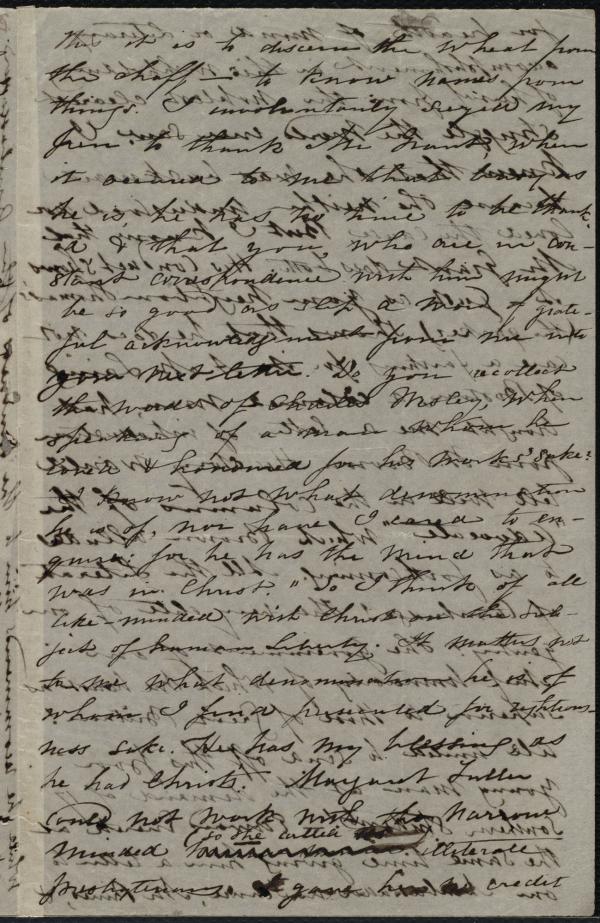 that it is to discern the wheat from
the chaff — to know names from
things. I involuntarily seized my
pen to thank Mr Grant, when
it occured to me that busy as
he is, he has no time to be thank-
ed & that you, who are in con-
stant correspondence with him might
be so good as slip a word of grate-
ful acknowledgment from me into
your next letter. Do you recollect
the words of Charles Wesley, when
speaking of a man whom he
loved & honored for his works' sake:
"I know not what denomination
he is of, nor have I cared to en-
quire: for he has the mind that
was in Christ." So I think of all
like-minded with Christ on the sub-
ject of human liberty. It matters not
to me what denomination he is of
whom I find persecuted for righteous-
ness sake. He has my blessing as
he had Christ's. Margaret Fuller
could not work with the narrow
minded so she called illiterate
Presbyterians. gave her credit